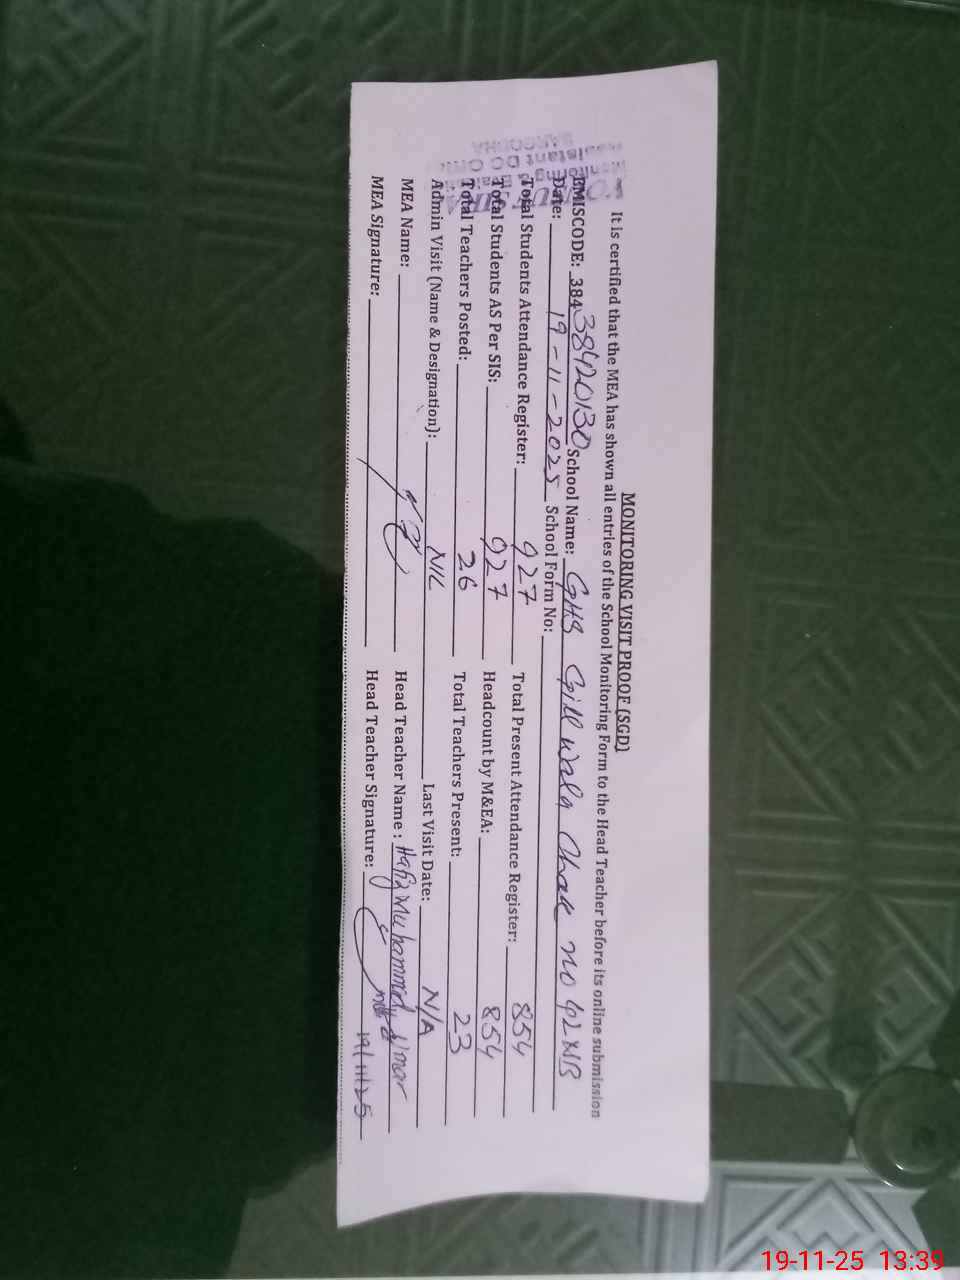 MONITORING VISIT PROOF (SGD)
It is certified that the MEA has shown all entries of the School Monitoring Form to the Head Teacher before its online submission
EMISCODE: 38438420130 School Name: GHS Gill wala Chak no 42 NB
Date: 19-11-2025 School Form No:
Total Students Attendance Register: 927 Total Present Attendance Register: 854
Total Students AS Per SIS: 927 Headcount by M&EA: 854
Total Teachers Posted: 26 Total Teachers Present: 23
Admin Visit (Name & Designation): NIL Last Visit Date: N/A
MEA Name: Head Teacher Name : Hafiz Muhammad Umar
MEA Signature: Head Teacher Signature: 19/11/25
Assistant DO
SARGODHA
19-11-25 13:39